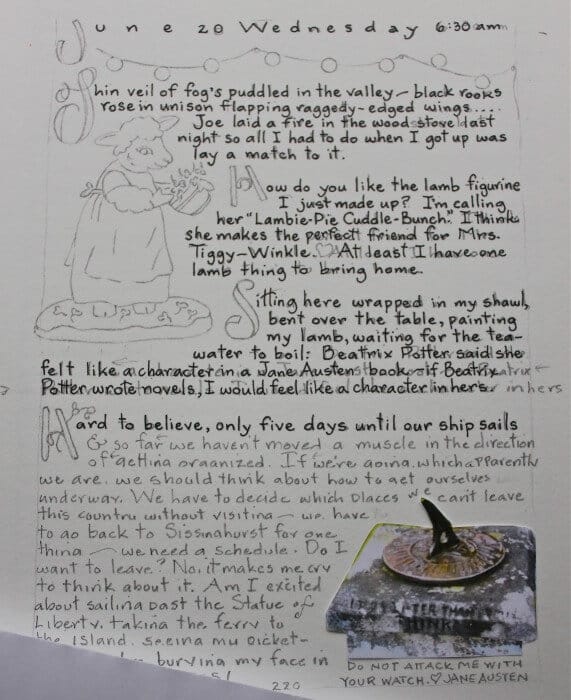 June 20 Wednesday 6:30 am
Thin veil of fog's puddled in the valley – black rooks
rose in unison flapping raggedy-edged wings....
Joe laid a fire in the wood stove last
night so all I had to do when I got up was
lay a match to it.
How do you like the lamb figurine
I just made up? I'm calling
her "Lambie-Pie Cuddle-Bunch." I think
she makes the perfect friend for Mrs.
Tiggy-Winkle. ♡ At least I have one
lamb thing to bring home.
Sitting here wrapped in my shawl,
bent over the table, painting
my lamb, waiting for the tea-
water to boil: Beatrix Potter said she
felt like a character in a Jane Austen book – if Beatrix
Potter wrote novels, I would feel like a character in hers. in hers
Hard to believe, only five days until our ship sails
& so far we haven't moved a muscle in the direction
of getting organized. If we're going, which apparently
we are, we should think about how to get ourselves
underway. We have to decide which places we can't leave
this country without visiting – we have
to go back to Sissinghurst for one
thing – we need a schedule. Do I
want to leave? No, it makes me cry
to think about it. Am I excited
about sailing past the Statue of
Liberty, taking the ferry to
the Island, seeing my picket-
burying my face in
220
IT IS LATER THAN
THINK
DO NOT ATTACK ME WITH
YOUR WATCH. ♡ JANE AUSTEN